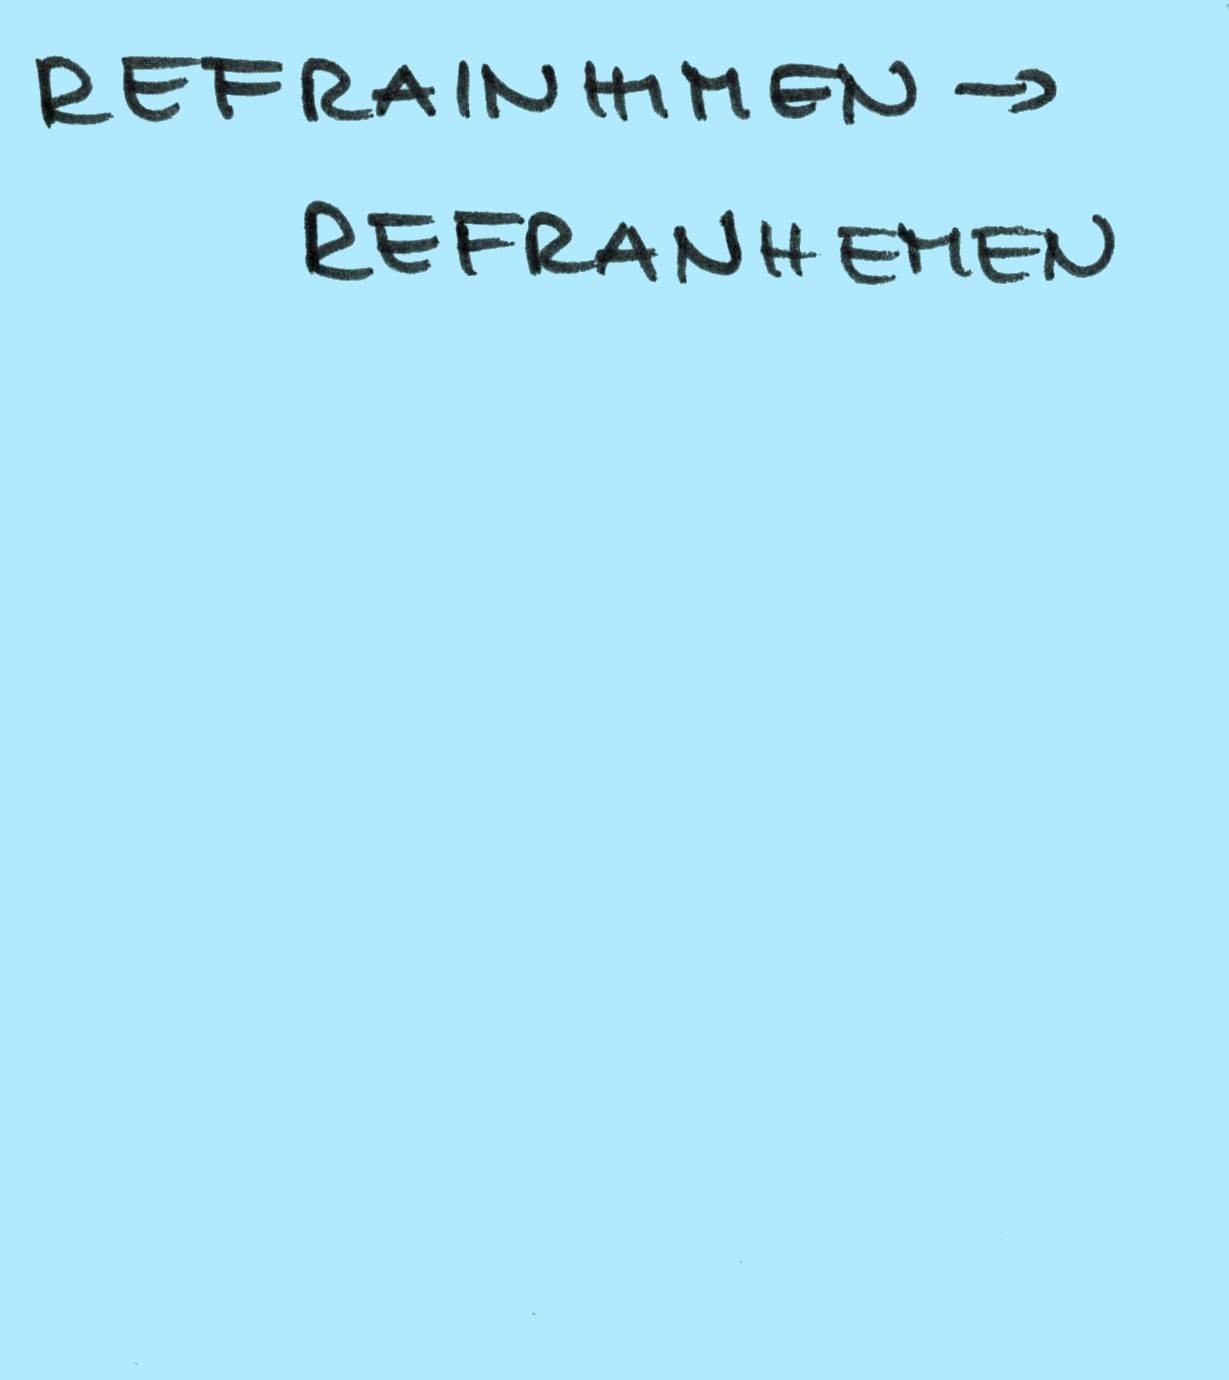 REFRAINHIMEN →
REFRANHEMEN